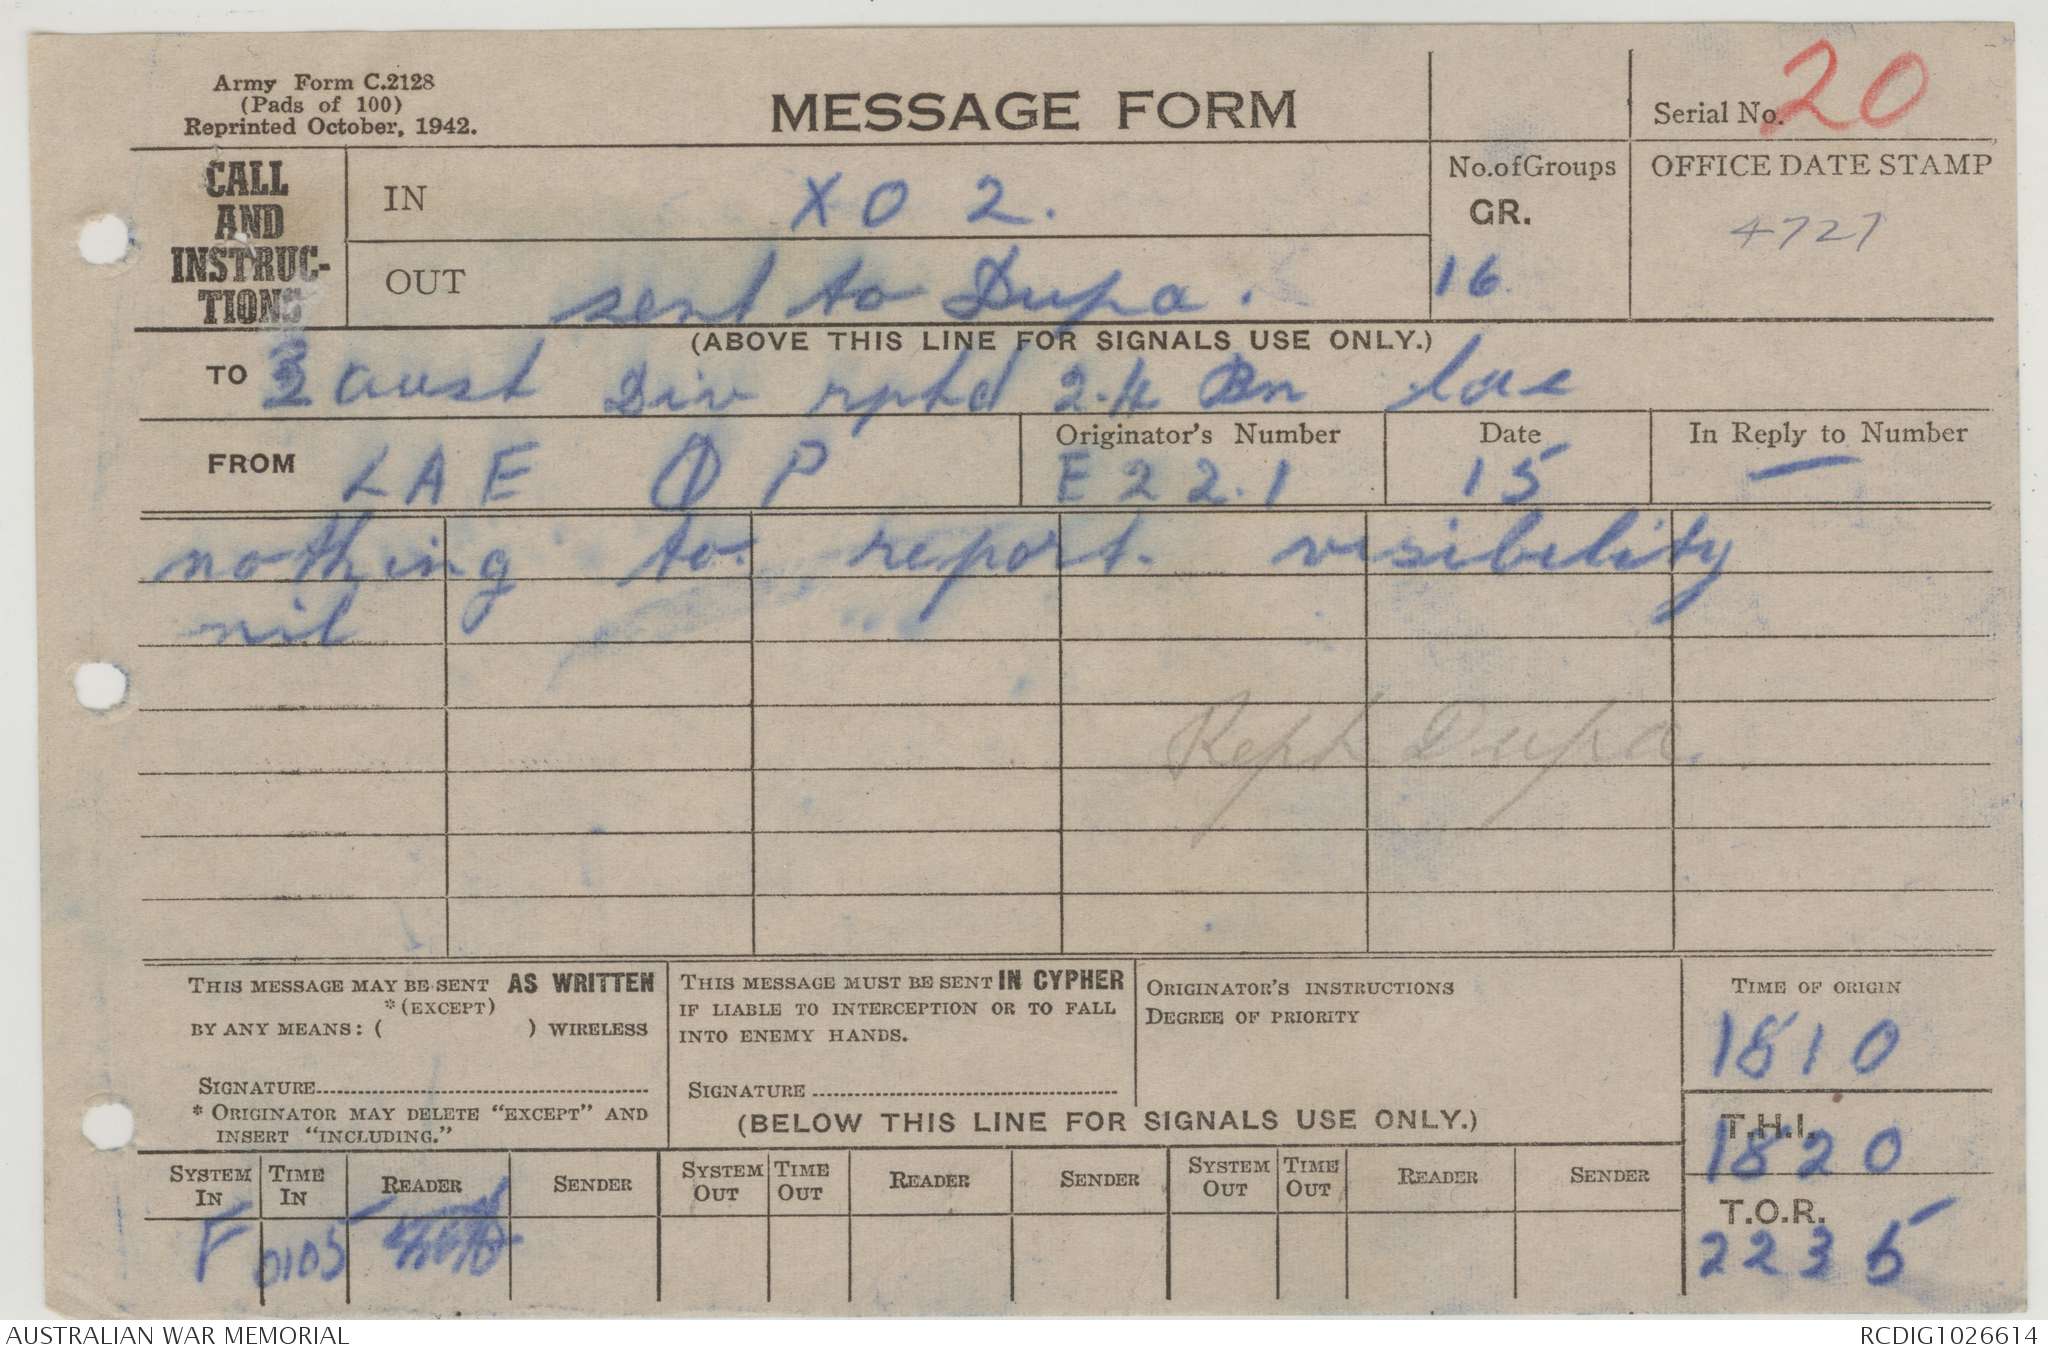 Army Form C.2128
(Pads of 100)
Reprinted October, 1942.
MESSAGE FORM
Serial No. 20
CALL
AND
INSTRUC-
TIONS
IN X O 2.
OUT sent to Dupa.
No. of Groups
GR.
16
OFFICE DATE STAMP
4727
(ABOVE THIS LINE FOR SIGNALS USE ONLY.)
TO aust Div rptd Bn lae
FROM LAE O P
Originator's Number
E 22.1
Date
15
In Reply to Number
—
nothing to report. visibility
nil
Dupa.
THIS MESSAGE MAY BE SENT AS WRITTEN
*(EXCEPT)
BY ANY MEANS: ( ) WIRELESS
SIGNATURE
* ORIGINATOR MAY DELETE "EXCEPT" AND
INSERT "INCLUDING."
THIS MESSAGE MUST BE SENT IN CYPHER
IF LIABLE TO INTERCEPTION OR TO FALL
INTO ENEMY HANDS.
SIGNATURE
ORIGINATOR'S INSTRUCTIONS
DEGREE OF PRIORITY
TIME OF ORIGIN
1810
T.H.I.
1820
T.O.R.
2235
(BELOW THIS LINE FOR SIGNALS USE ONLY.)
SYSTEM IN TIME IN READER SENDER SYSTEM OUT TIME OUT READER SENDER SYSTEM OUT TIME OUT READER SENDER
F 0105
AUSTRALIAN WAR MEMORIAL RCDIG1026614